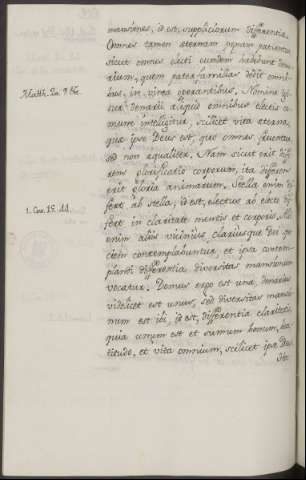 mansiones, id est, suppliciorum differentia.
Omnes tamen aeternam poenam patientur
sicut omnes electi eundem habebunt dena-
rium, quem paterfamilias dedit omni-
bus, in vinea operantibus. Nomine
denarii aliquid omnibus electis com-
mune intelligitur, scilicet vita aeterna,
quae ipse Deus est, quo omnes fruentur,
sed non aequaliter. Nam sicut erit dif-
ferens glorificatio corporum, ita differens
erit gloria animarum. Stella enim dif-
fert ab stella, id est, electus ab electo dif-
fert in claritate mentis et corporis. Alii
enim aliis vicinius clariusque Dei
ciem contemplabuntur, et ipsa contem-
plandi differentia diversitas mansionum
vocatur. Domus ergo est una, denarius
videlicet est unus, sed diversitas mansio-
num est ibi, id est, differentia claritatis,
quia unum est et summum bonum, bea-
titudo, et vita omnium, scilicet ipse Deus.
Matth. 20.
1. Cor. 15. 41.